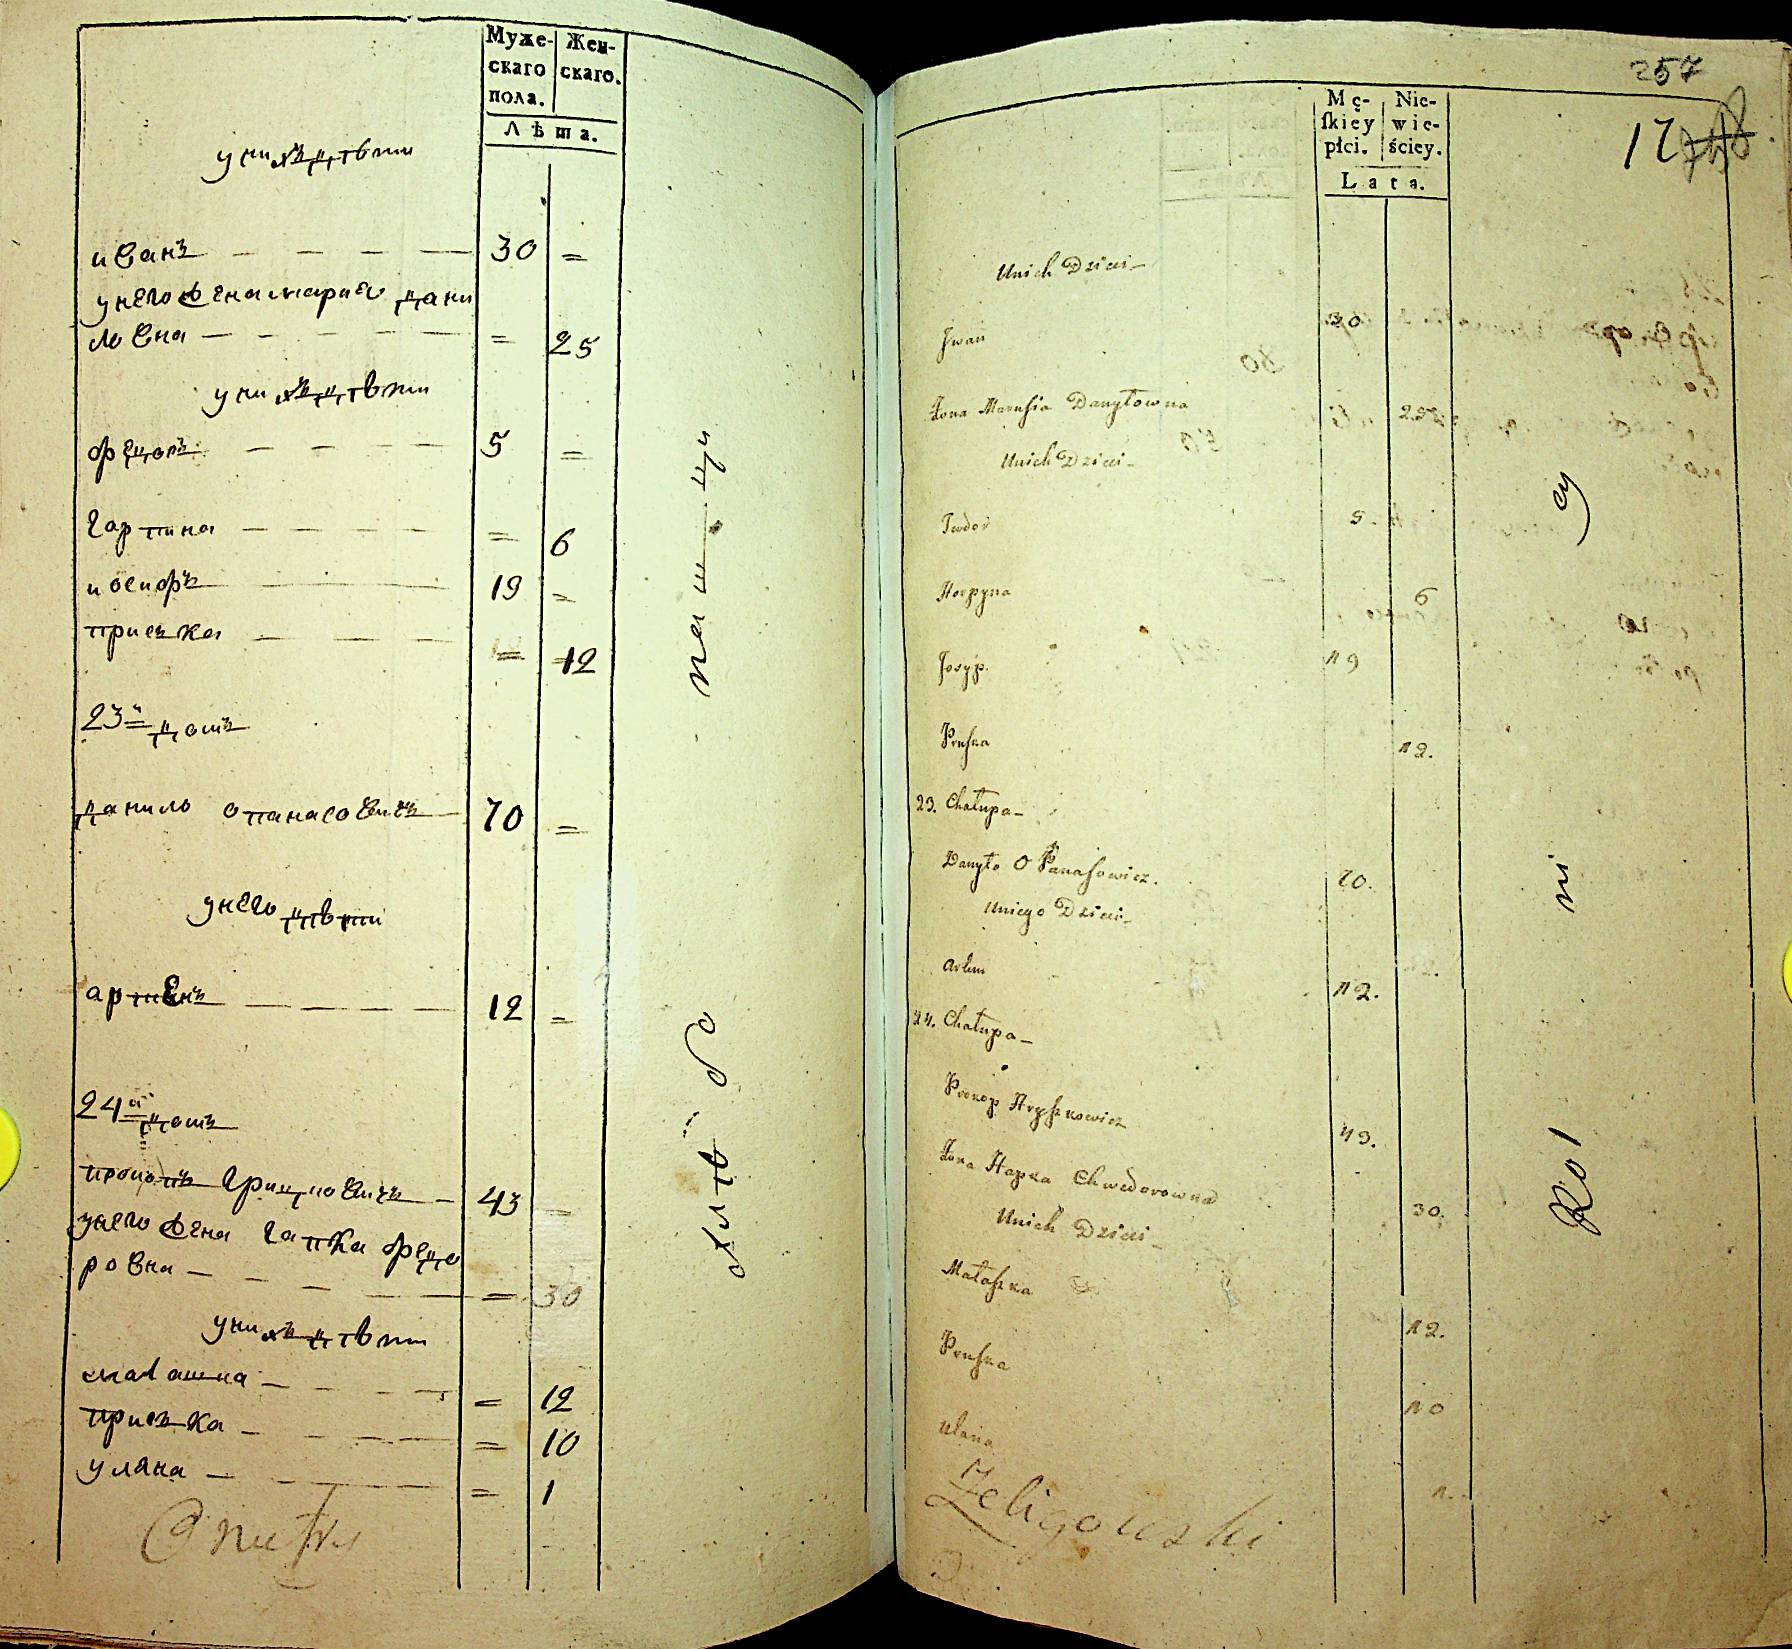 Муже-
скаго
пола.
Жен-
скаго.
Лѣта.
у нихъ дѣти
иванъ 30 =
унего жена мариѧ дани
ловна = 25
у нихъ дѣти
федоръ 5 =
гарпина = 6
иосифъ 19 =
приська = 12
23й домъ
данило опанасовичъ 70 =
унего дѣти
артемъ 12 =
24й домъ
прокопъ грицковичъ 43 =
унего жена гапка федо
ровна = 30
у нихъ дѣти
малашка = 12
приська = 10
уляна = 1
257
17
Mę-
ſkiey
płci.
Nie-
wie-
ściey.
Lata.
Unich Dzieci
Jwan 30
Żona Marusia Danyłowna 25
Unich Dzieci
Fwdor 5
Horpyna 6
Josyp. 19
Pruska 12.
23. Chałupa
Danyło O Panasowicz. 70.
Uniego Dzieci
Artem 12.
24. Chałupa
Prokop Hryszkowicz 43.
Żona Hapka Chwedorowna 30.
Unich Dzieci
Małaszka 12.
Pruska 10
Ulana 1.
Zeligowski